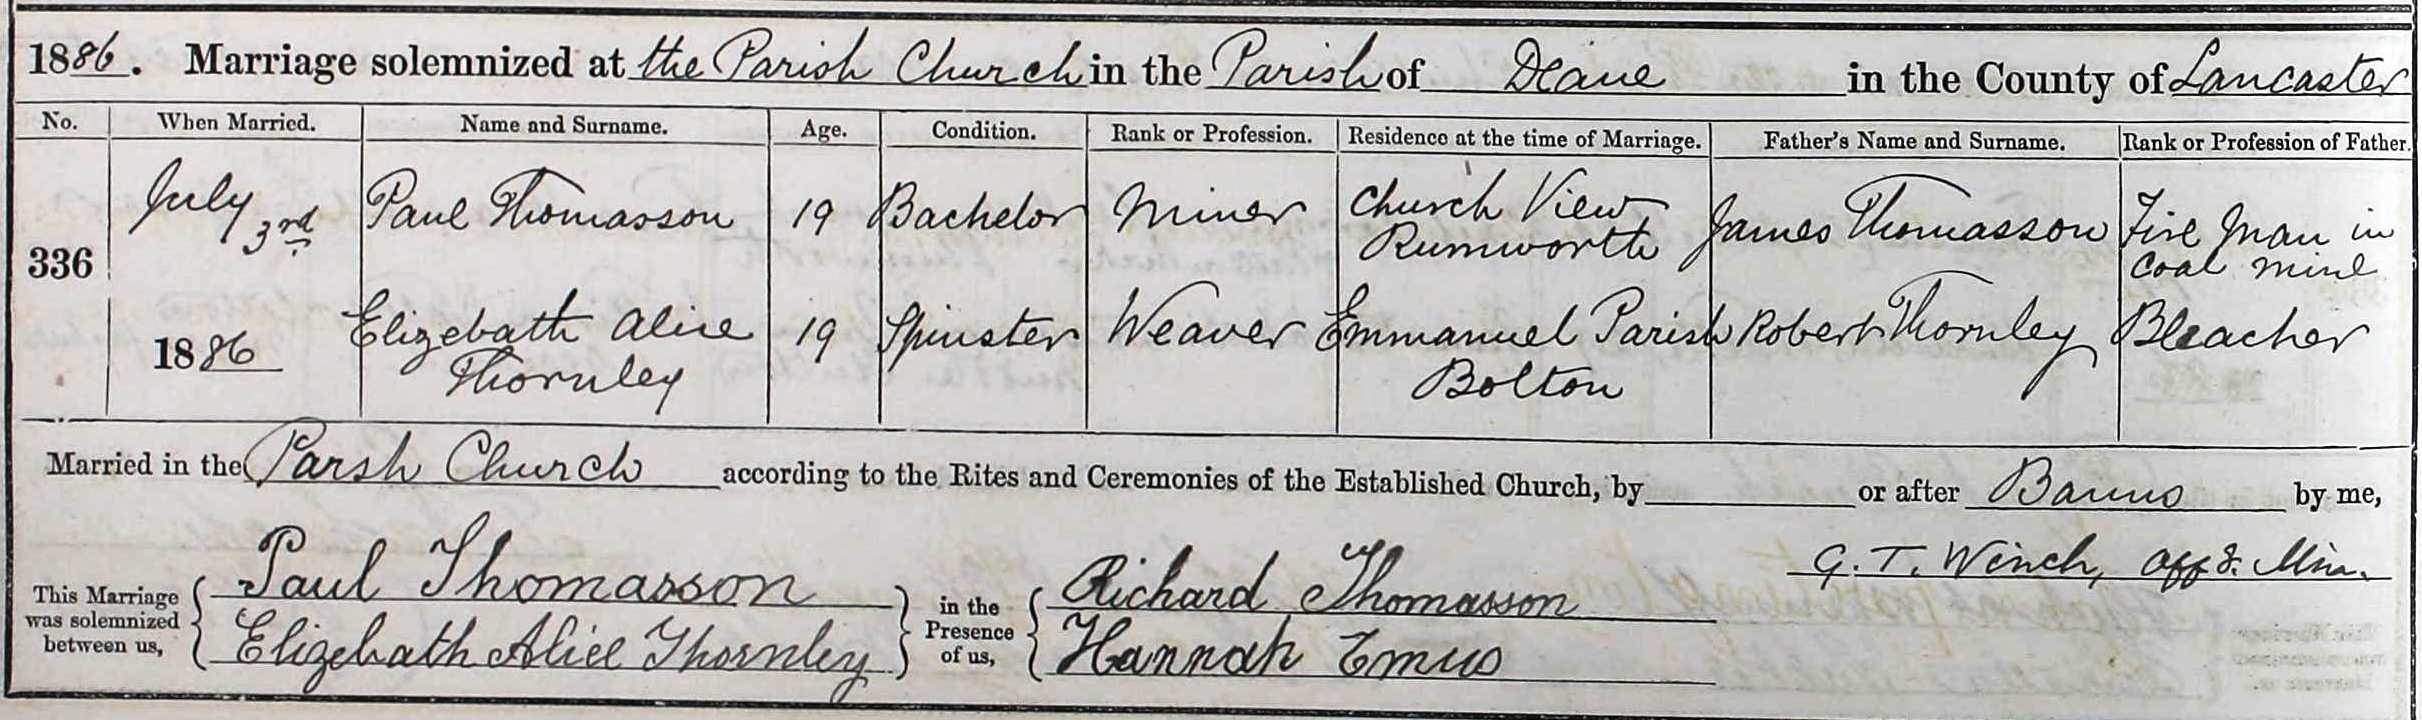 1886. Marriage solemnized at the Parish Church in the Parish of Deane in the County of Lancaster
No. When Married. Name and Surname. Age. Condition. Rank or Profession. Residence at the time of Marriage. Father's Name and Surname. Rank or Profession of Father.
336 July 3rd 1886
Paul Thomasson 19 Bachelor Miner Church View Rumworth James Thomasson Fire Man in Coal Mine
Elizebath Alice Thornley 19 Spinster Weaver Emmanuel Parish Bolton Robert Thornley Bleacher
Married in the Parsh Church according to the Rites and Ceremonies of the Established Church, by or after Banns by me,
G. T. Winch, Offg. Min.
This Marriage was solemnized between us,
Paul Thomasson
Elizebath Alice Thornley
in the Presence of us,
Richard Thomasson
Hannah Emus